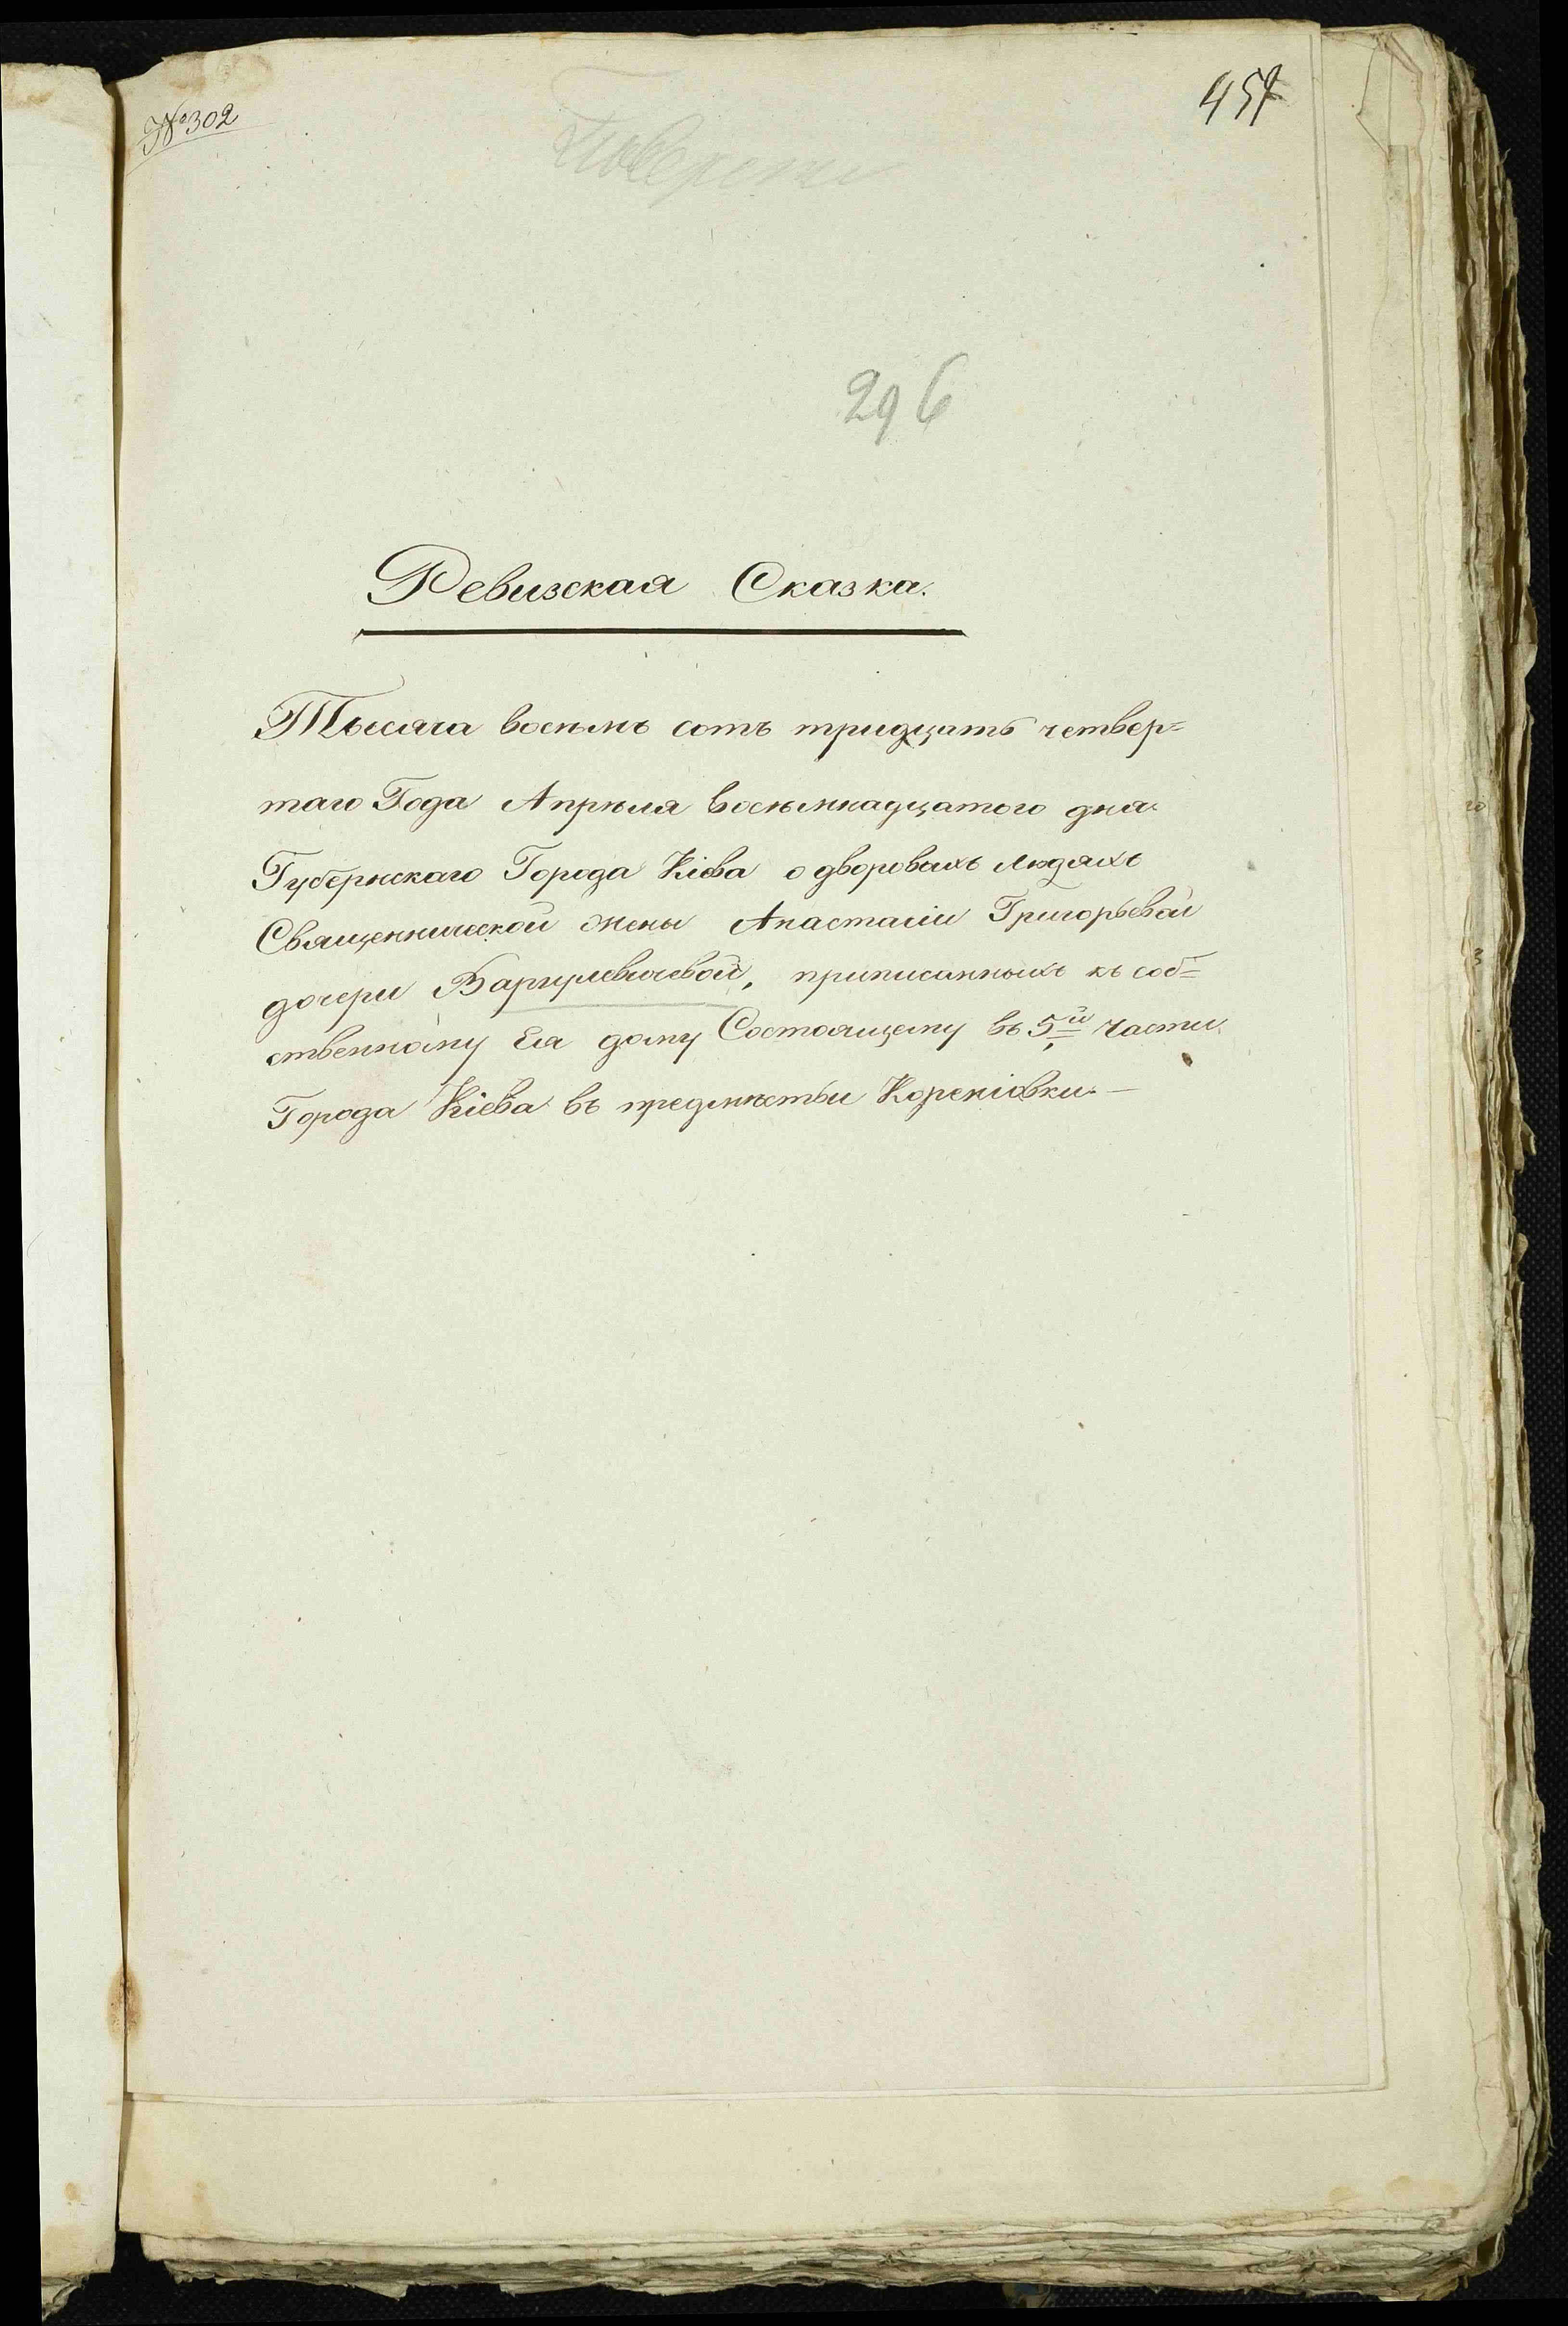 №302
457
Поверено
296
Ревизская Сказка.
Тысяча восемь сотъ тридцать четвер=
таго Года Апрѣля восемнадцатого дня
Губернскаго Города Кіева о дворовыхъ людяхъ
Священнической жены Анастасіи Григорьевой
дочери Варгулевичевой, приписанныхъ къ соб=
ственному Ея дому Состоящему въ 5й части
Города Кіева въ предмѣстьи Кореніовки.—